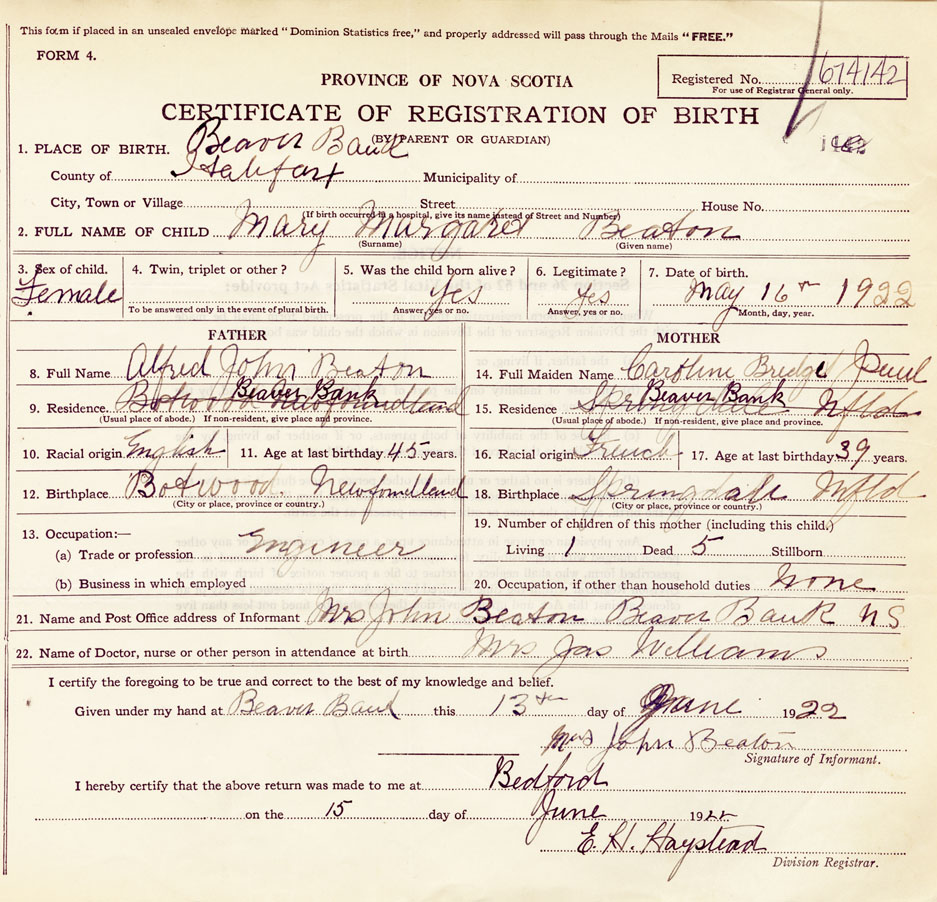 This form if placed in an unsealed envelope marked "Dominion Statistics free," and properly addressed will pass through the Mails "FREE."
FORM 4.
Registered No. 674142
For use of Registrar General only.
PROVINCE OF NOVA SCOTIA
CERTIFICATE OF REGISTRATION OF BIRTH
(BY PARENT OR GUARDIAN)
1. PLACE OF BIRTH. Beaver Bank
County of Halifax Municipality of
City, Town or Village Street House No.
(If birth occurred in a hospital, give its name instead of Street and Number)
2. FULL NAME OF CHILD Mary Margaret Beaton
(Surname) (Given name)
3. Sex of child. 4. Twin, triplet or other? 5. Was the child born alive? 6. Legitimate? 7. Date of birth.
Female Yes Yes May 16th 1922
To be answered only in the event of plural birth. Answer, yes or no. Answer, yes or no. Month, day, year.
FATHER
8. Full Name Alfred John Beaton
Beaver Bank
9. Residence. Botwood Newfoundland
(Usual place of abode.) If non-resident, give place and province.
10. Racial origin English 11. Age at last birthday 45 years.
12. Birthplace Botwood. Newfoundland
(City or place, province or country.)
13. Occupation:—
(a) Trade or profession Engineer
(b) Business in which employed
MOTHER
14. Full Maiden Name Caroline Bridge Paul
Beaver Bank
15. Residence Springdale Nfld
(Usual place of abode.) If non-resident, give place and province.
16. Racial origin French 17. Age at last birthday 39 years.
18. Birthplace Springdale Nfld
(City or place, province or country.)
19. Number of children of this mother (including this child.)
Living 1 Dead 5 Stillborn
20. Occupation, if other than household duties None
21. Name and Post Office address of Informant Mrs John Beaton Beaver Bank NS
22. Name of Doctor, nurse or other person in attendance at birth Mrs Jas Williams
I certify the foregoing to be true and correct to the best of my knowledge and belief.
Given under my hand at Beaver Bank this 13th day of June 1922
Mrs John Beaton
Signature of Informant.
I hereby certify that the above return was made to me at Bedford
on the 15 day of June 1922
E. H. Haystead
Division Registrar.